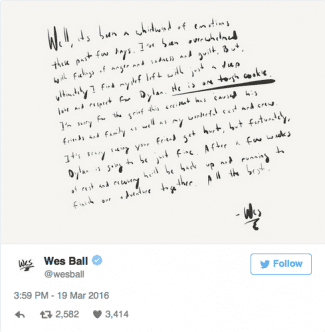 Well, its been a whirlwind of emotions
these past few days. I've been overwhelmed
with feelings of anger and sadness and guilt. But,
ultimately I find myself left with just a deep
love and respect for Dylan. He is one tough cookie.
I'm sorry for the scare this accident has caused his
friends and family as well as my wonderful cast and crew.
It's scary seeing your friend get hurt, but fortunately,
Dylan is going to be just fine. After a few weeks
of rest and recovery he'll be back up and running to
finish our adventure together. All the best.
- Wes
Wes
Wes Ball
@wesball
Follow
3:59 PM - 19 Mar 2016
2,582
3,414